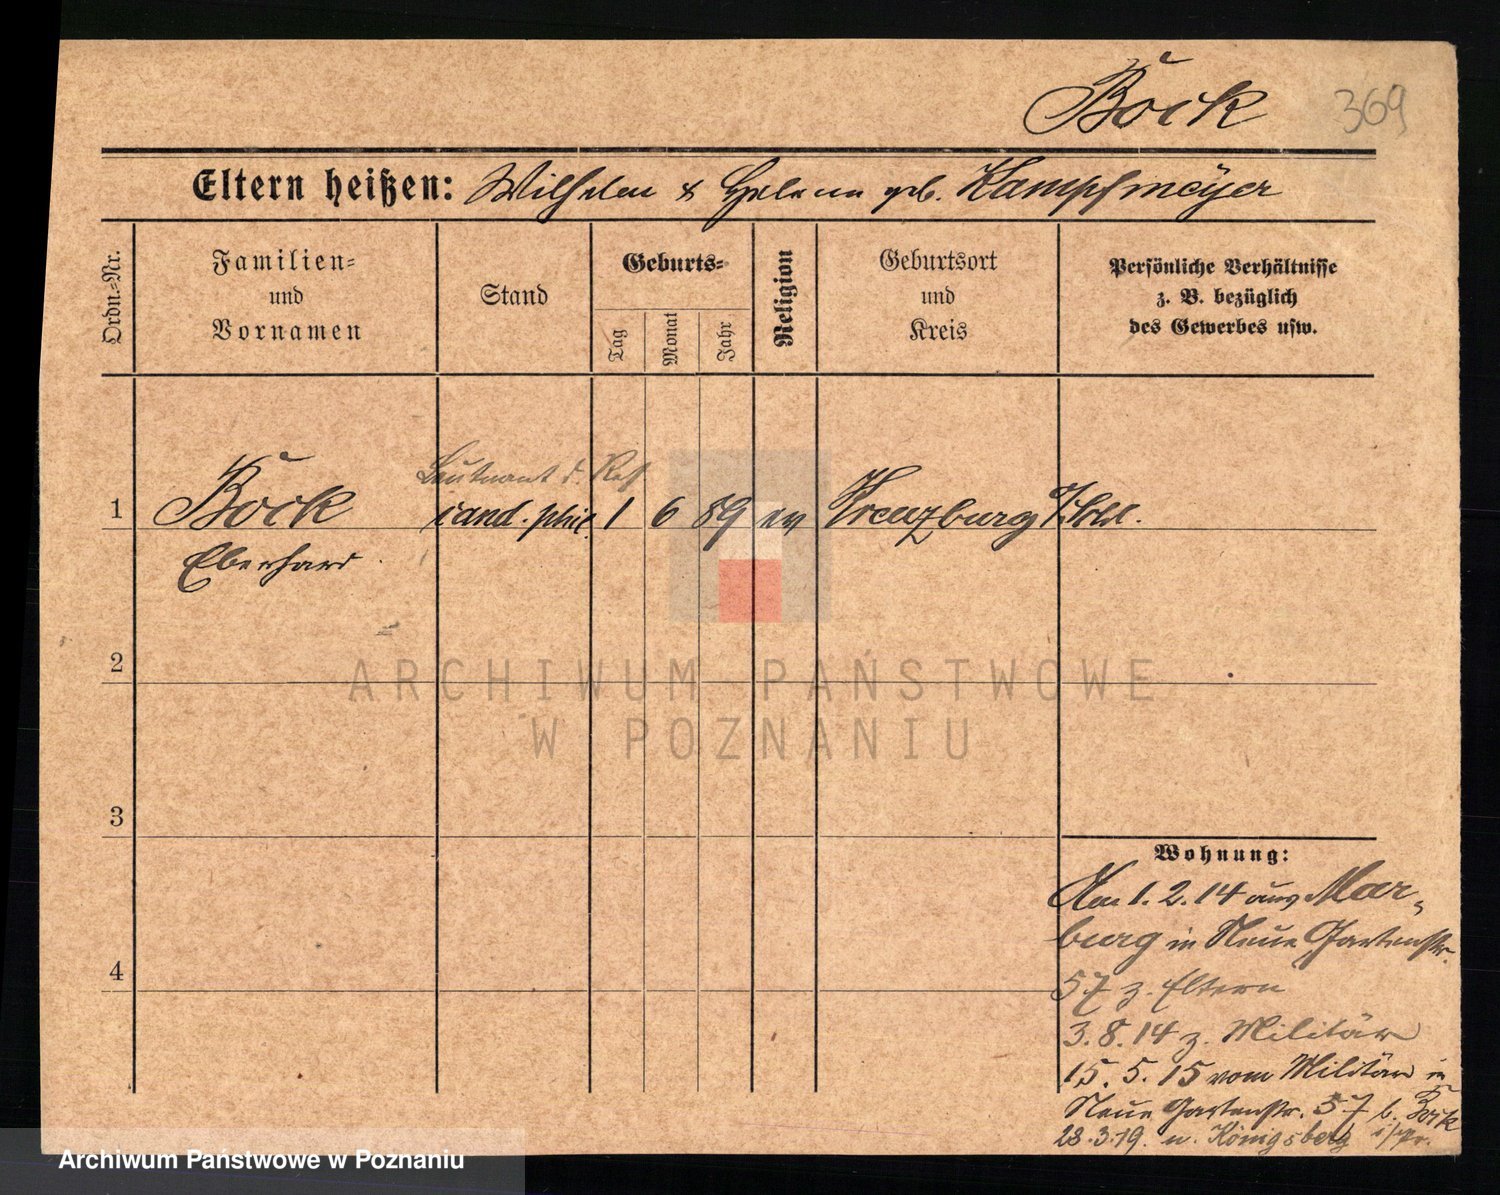 Bock 369
Eltern heißen: Wilhelm & Helene geb. Kampfmeyer
Ordn.-Nr.
Familien-
und
Vornamen
Stand
Geburts-
Tag
Monat
Jahr
Religion
Geburtsort
und
Kreis
Persönliche Verhältnisse
z. B. bezüglich
des Gewerbes usw.
Leutnant d. Res
1 Bock cand. phil. 1 6 89 ev Kreuzburg
Eberhard
2
ARCHIWUM PAŃSTWOWE
W POZNANIU
3
Wohnung:
Am 1. 2. 14 aus Mar-
burg in Neue Gartenstr.
4
57 z. Eltern
3. 8. 14 z. Militär
15. 5. 15 vom Militär in
Neue Gartenstr. 57 b. Bock
28.3.19. n. Königsberg i/Pr.
Archiwum Państwowe w Poznaniu